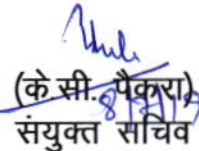 (के.सी. पैकरा)
संयुक्त सचिव